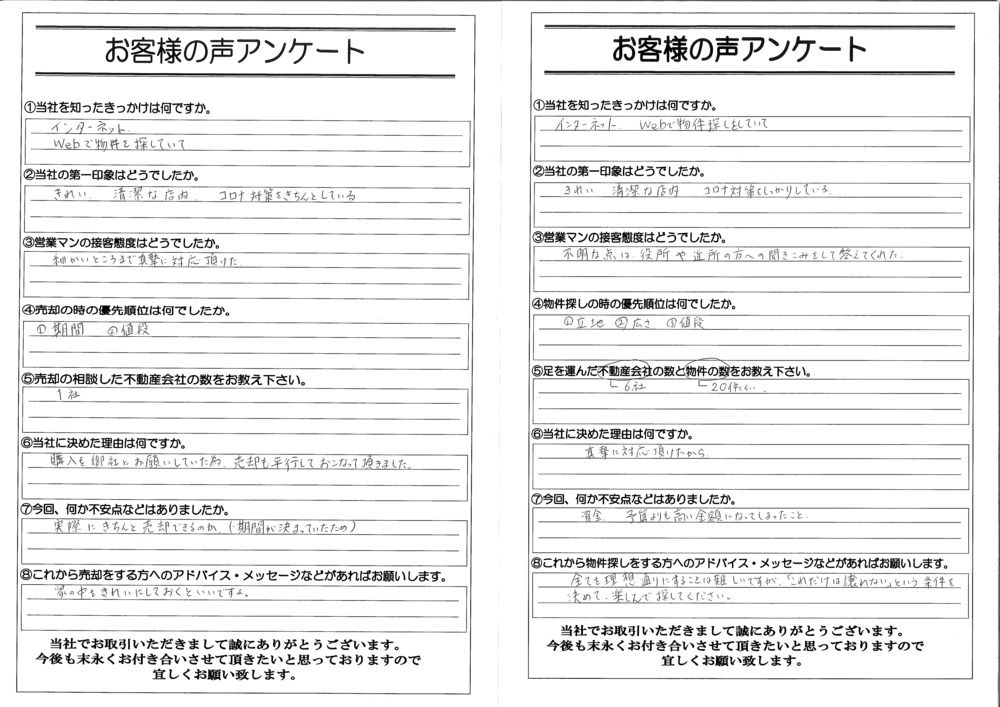 お客様の声アンケート
①当社を知ったきっかけは何ですか。
インターネット.
Webで物件を探していて
②当社の第一印象はどうでしたか。
きれい. 清潔な店内. コロナ対策をきちんとしている
③営業マンの接客態度はどうでしたか。
細かいところまで真摯に対応頂けた.
④売却の時の優先順位は何でしたか。
①期間 ②値段
⑤売却の相談した不動産会社の数をお教え下さい。
1社
⑥当社に決めた理由は何ですか。
購入も御社にお願いしていた為、売却も平行しておこなって頂きました。
⑦今回、何か不安点などはありましたか。
実際にきちんと売却できるのか、(期間が決まっていたため)
⑧これから売却をする方へのアドバイス・メッセージなどがあればお願いします。
家の中をきれいにしておくといいですよ。
当社でお取引いただきまして誠にありがとうございます。
今後も末永くお付き合いさせて頂きたいと思っておりますので
宜しくお願い致します。
お客様の声アンケート
①当社を知ったきっかけは何ですか。
インターネット. Webで物件探しをしていて
②当社の第一印象はどうでしたか。
きれい 清潔な店内 コロナ対策をしっかりしている.
③営業マンの接客態度はどうでしたか。
不明な点は、役所や近所の方への聞きこみをして答えてくれた.
④物件探しの時の優先順位は何でしたか。
①立地 ②広さ ③値段
⑤足を運んだ不動産会社の数と物件の数をお教え下さい。
6社 20件くらい.
⑥当社に決めた理由は何ですか。
真摯に対応頂けたから
⑦今回、何か不安点などはありましたか。
資金. 予算よりも高い金額になってしまったこと.
⑧これから物件探しをする方へのアドバイス・メッセージなどがあればお願いします。
全てを理想通りにすることは難しいですが、「これだけは譲れない」という条件を
決めて、楽しんで探してください。
当社でお取引いただきまして誠にありがとうございます。
今後も末永くお付き合いさせて頂きたいと思っておりますので
宜しくお願い致します。